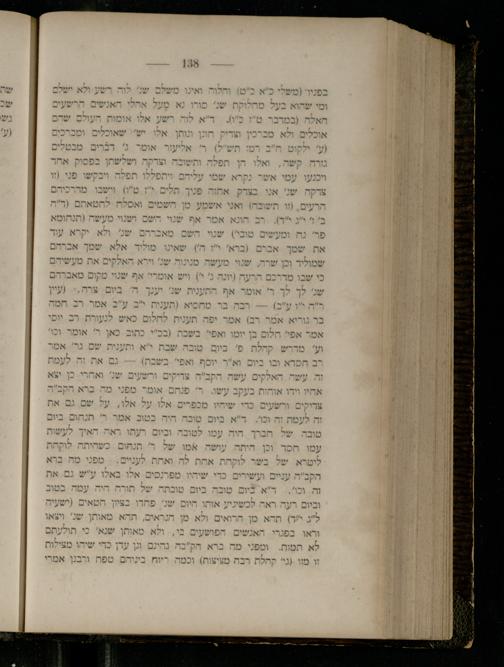 — 138 —
בפניו (משלי כ"א כ"ט) והלוה ואינו משלם שנ' לוה רשע ולא ישלם
ומי שהוא בעל מחלוקת שנ' סורו נא מעל אהלי האנשים הרשעים
האלה (במדבר ט"ז כ"ו). ד"א לוה רשע אלו אומות העולם שהם
אוכלים ולא מברכין וצדיק חונן ונותן אלו יש' שאוכלים ומברכים
(ע' ילקוט ח"ב רמז תש"ל) ר' אליעזר אומר ג' דברים מבטלים
גזרה קשה, ואלו הן תפלה ותשובה וצדקה ושלשתן בפסוק אחד
ויכנעו עמי אשר נקרא שמי עליהם ויתפללו תפלה ויבקשו פני (זו
צדקה שנ' אני בצדק אחזה פניך תלים י"ז ט"ו) וישובו מדרכיהם
הרעים (זו תשובה) ואני אשמע מן השמים ואסלח לחטאתם (ד"ה
ב' ז' י"ד). רב הונא אמר אף שנוי השם ושנוי מעשה (תנחומא
פר' נח ומעשים טובי') שנוי השם מאברהם שנ' ולא יקרא עוד
את שמך אברם (ברא' י"ז ה') שאינו מוליד אלא שמך אברהם
שמוליד וכן שרה, שנוי מעשה מנינוה שנ' וירא האלקים את מעשיהם
כי שבו מדרכם הרעה (יונה ג' י') ויש אומרי' אף שנוי מקום מאברהם
שנ' לך לך ר' אומר אף התענית שנ' יענך ה' ביום צרה. (עיין
ר"ה י"ו ע"ב) — רבה בר מחסיא (תענית י"ב ע"ב אמר רב חמה
בר גוריא אמר רב) אמר יפה תענית לחלום כאש לנעורת רב יוסי
אמר אפי' חלום בן יומו ואפי' בשבת (בכ"י כתוב כאן ר' אומר וכו'
וע' מדרש קהלת פ' ביום טובה שבת י"א ותענית שם גר' אמר
רב חסדא ובו ביום וא"ר יוסף ואפי' בשבת) — גם את זה לעמת
זה עשה האלקים עשה הקב"ה צדיקים ורשעים שנ' ואחרי כן יצא
אחיו וידו אוחזת בעקב עשו. ר' פנחם אומר מפני מה ברא הקב"ה
צדיקים ורשעים כדי שיהיו מכפרים אלו על אלו, על שם גם את
זה לעמת זה וכו'. ד"א ביום טובה היה בטוב אמר ר' תנחום ביום
טובה של חברך היה עמו לטובה וביום רעתו ראה האיך לעשות
עמו חסד וכן היתה עושה אמו של ר' תנחום כשהיתה לוקחת
ליטרא של בשר לוקחת אחת לה ואחת לעניים. מפני מה ברא
הקב"ה עניים ועשירים כדי שיהיו מפרנסים אלו באלו ע"ש גם את
זה וכו'. ד"א ביום טובה ביום טובתה של תורה היה עמה בטוב
וביום רעה ראה לכשיגיע אותו היום שנ' פחדו בציון חטאים (ישעיה
ל"ג י"ד) תהא מן הרואים ולא מן הנראים, תהא מאותן שנ' ויצאו
וראו בפגרי האנשים הפושעים בי, ולא מאותן שנא' כי תולעתם
לא תמות. ומפני מה ברא הקב"ה גהינם וגן עדן כדי שיהו מצילות
זו מזו (גי' קהלת רבה מציצות) וכמה ריוח ביניהם טפח ורבנן אמרי